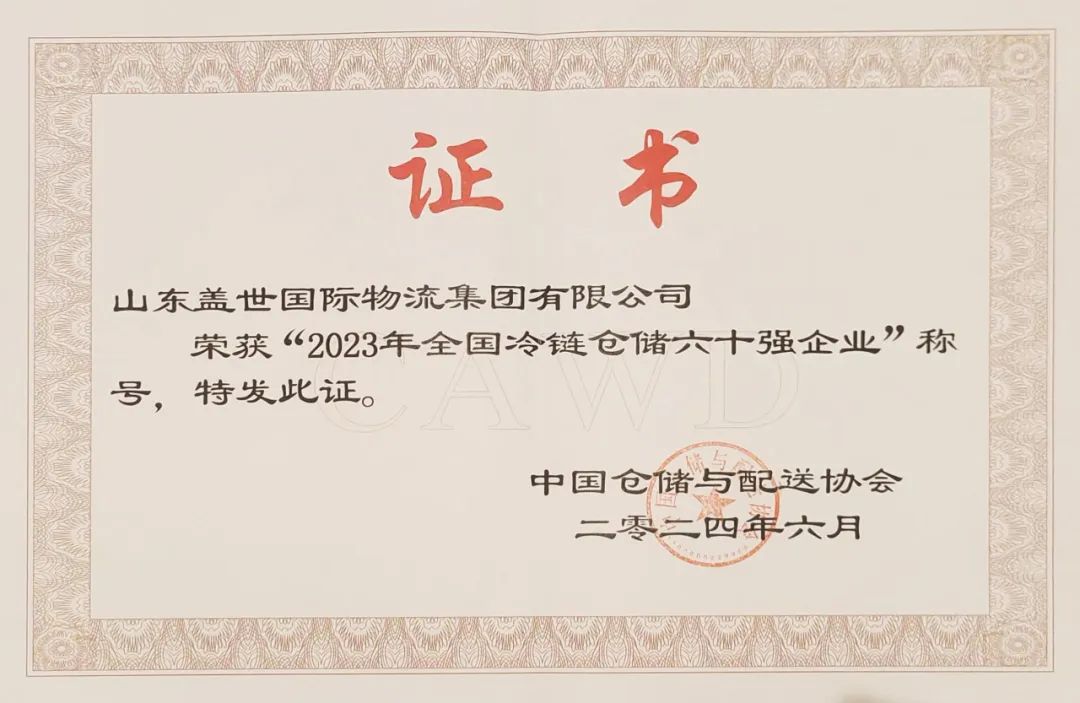 证 书
山东盖世国际物流集团有限公司
荣获“2023年全国冷链仓储六十强企业”称
号，特发此证。
CAWD
中国仓储与配送协会
二零二四年六月